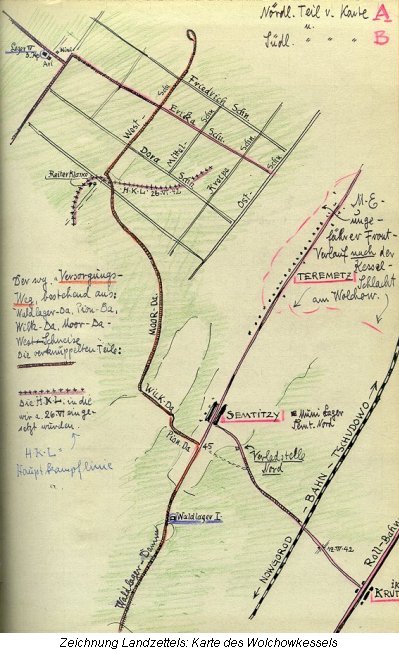 Nördl. Teil v. Karte A
u.
Südl. " " " B
Lager IV
3. Apl
Friedrich Schn.
Schn.
Erika
Schn.
West-
Dora
Schn.
Mittel-
Schn.
Schn.
Kreipe
Ost-
Schn.
Reiterklause
H.K.L. 26.VI.42
M.E.
unge-
fährer Front-
Verlauf nach der
Kessel-
Schlacht
am Wolchow.
TEREMETZ
Der sog. "Versorgungs-
Weg, bestehend aus:
Waldlager-Da, Pion.-Da,
Wilk-Da, Moor-Da-
West-Schneise
Die verknüppelten Teile:
MOOR-Da.
Die H.K.L. in die
wir a. 26.VI einge-
setzt wurden.
H.K.L =
Hauptkampflinie
Wilk-Da.
Pion. Da
SEMTITZY
Muni Lager
Semt. Nord
Verladestelle
Nord
45
Waldlager I.
Waldlager-Damm
NOWGOROD - BAHN - TSCHUDOWO
Roll-Bahn
KRUT
Zeichnung Landzettels: Karte des Wolchowkessels